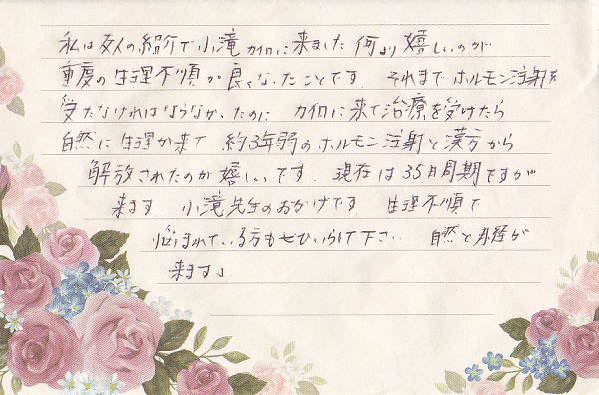 私は友人の紹介で小滝カイロに来ました 何より嬉しいのが
重度の生理不順が良くなったことです。それまでホルモン注射を
受けなければならなかったのに カイロに来て治療を受けたら
自然に生理が来て 約3年弱のホルモン注射と漢方から
解放されたのが嬉しいです。現在は35日周期ですが
来ます 小滝先生のおかげです。生理不順で
悩まれている方もぜひいらして下さい 自然と月経が
来ます」